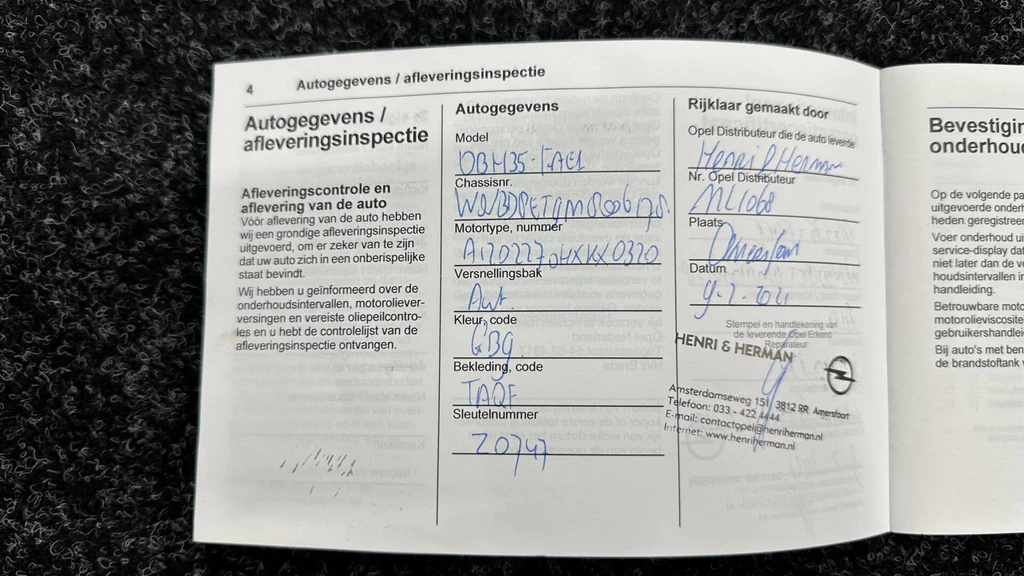 4 Autogegevens / afleveringsinspectie
Autogegevens /
afleveringsinspectie
Afleveringscontrole en
aflevering van de auto
Vóór aflevering van de auto hebben
wij een grondige afleveringsinspectie
uitgevoerd, om er zeker van te zijn
dat uw auto zich in een onberispelijke
staat bevindt.
Wij hebben u geïnformeerd over de
onderhoudsintervallen, motoroliever-
versingen en vereiste oliepeilcontro-
les en u hebt de controlelijst van de
afleveringsinspectie ontvangen.
Autogegevens
Model
OBH35-FAE1
Chassisnr.
Motortype, nummer
Versnellingsbak
Aut.
Kleur, code
GBg
Bekleding, code
TAQF
Sleutelnummer
Z0747
Rijklaar gemaakt door
Opel Distributeur die de auto leverde
Henri & Herman
Nr. Opel Distributeur
NL1068
Plaats
Datum
9-2-2021
Stempel en handtekening van
de leverende Opel Erkend
Reparateur
HENRI & HERMAN
Amsterdamseweg 151, 3812 RR Amersfoort
Telefoon: 033 - 422 4444
E-mail: contactopel@henriherman.nl
Internet: www.henriherman.nl
Bevestigin
onderhoud
Op de volgende pa
uitgevoerde onderh
heden geregistreer
Voer onderhoud ui
service-display dat
niet later dan de v
houdsintervallen in
handleiding.
Betrouwbare moto
motorolieviscosite
gebruikershandlei
Bij auto's met ben
de brandstoftank